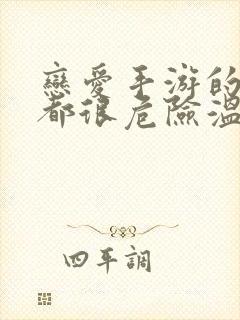 戀愛手游的
都很危險溫
四平調